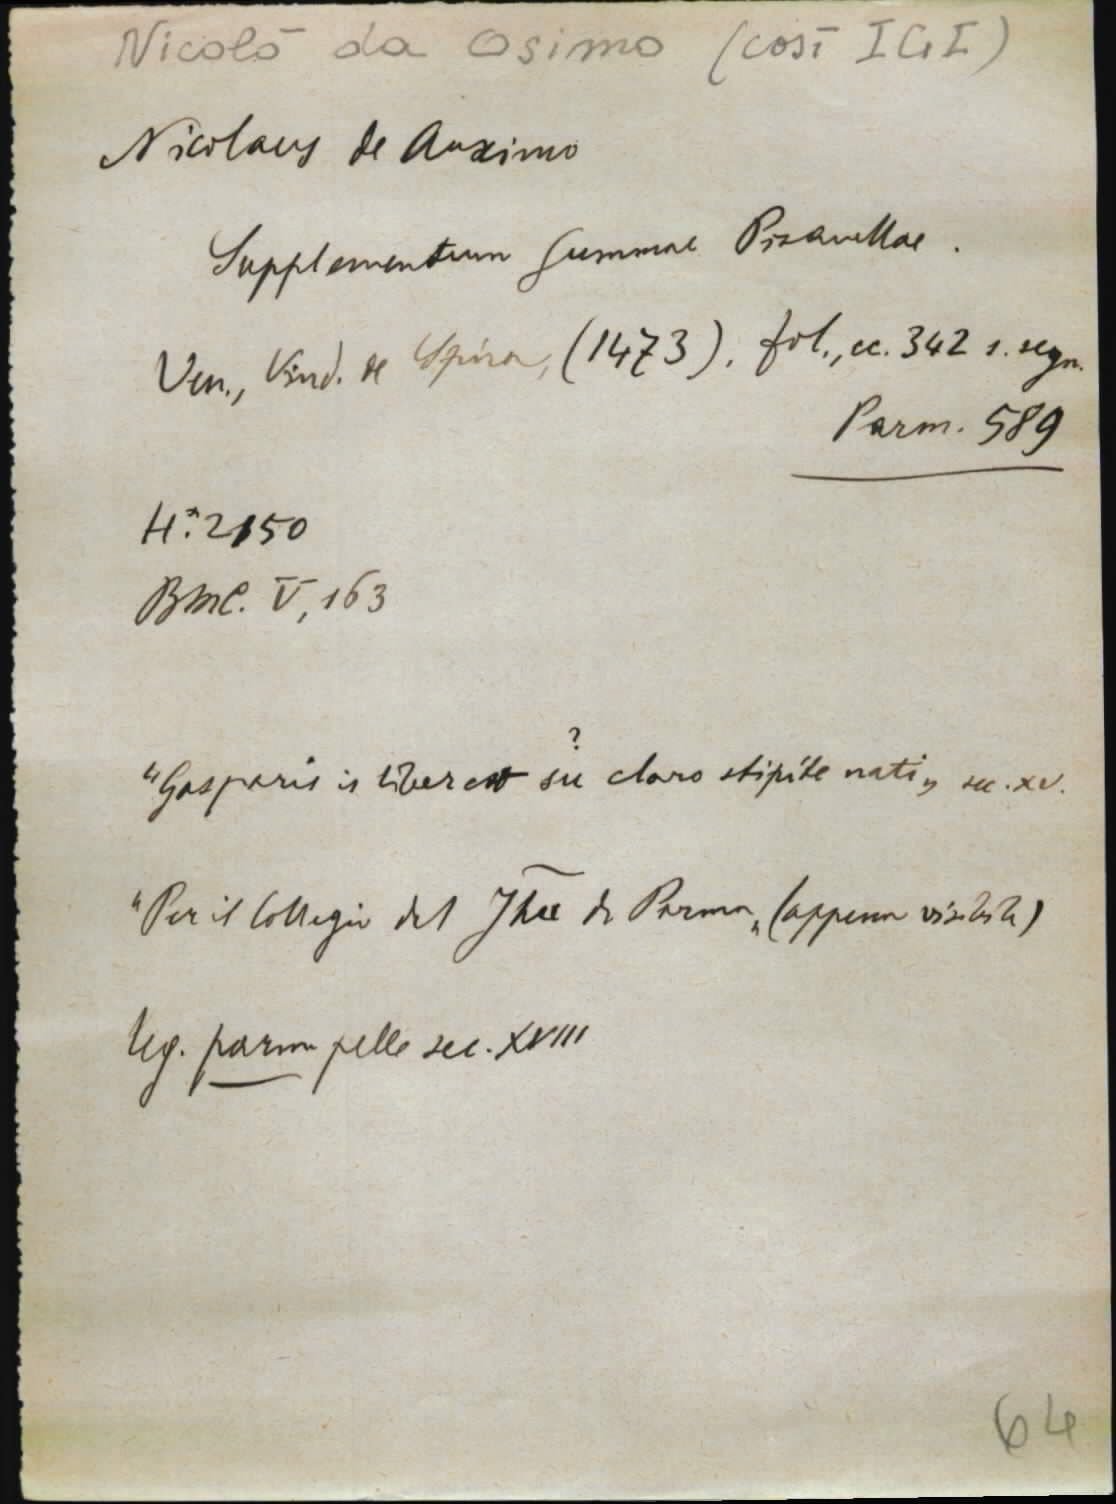 Nicolò da Osimo (così IGI)
Nicolaus de Auximo
Supplementum Summae Pisanellae.
Ven., Vind. de Spira, (1473). fol., cc. 342 s. segn.
Parm. 589
H*: 2150
BMC. V, 163
?
"Gasparis is liber est su claro stipite nati„ sec. XV.
"Per il Collegio del Jhu di Parma„ (appena visibile)
Leg. parm pelle sec. XVIII
64